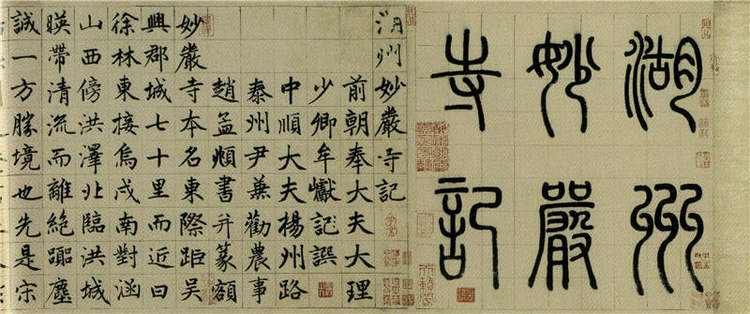 湖州
妙嚴
寺記
湖州妙嚴寺記
前朝奉大夫大理
少卿牟巘記譔
中順大夫楊州路
泰州尹兼勸農事
趙孟頫書并篆額
妙嚴寺本名東際距吳
興郡城七十里而近曰
徐林東接烏戍南對涵
山西傍洪澤北臨洪城
暎帶清流而離絕囂塵
誠一方勝境也先是宋